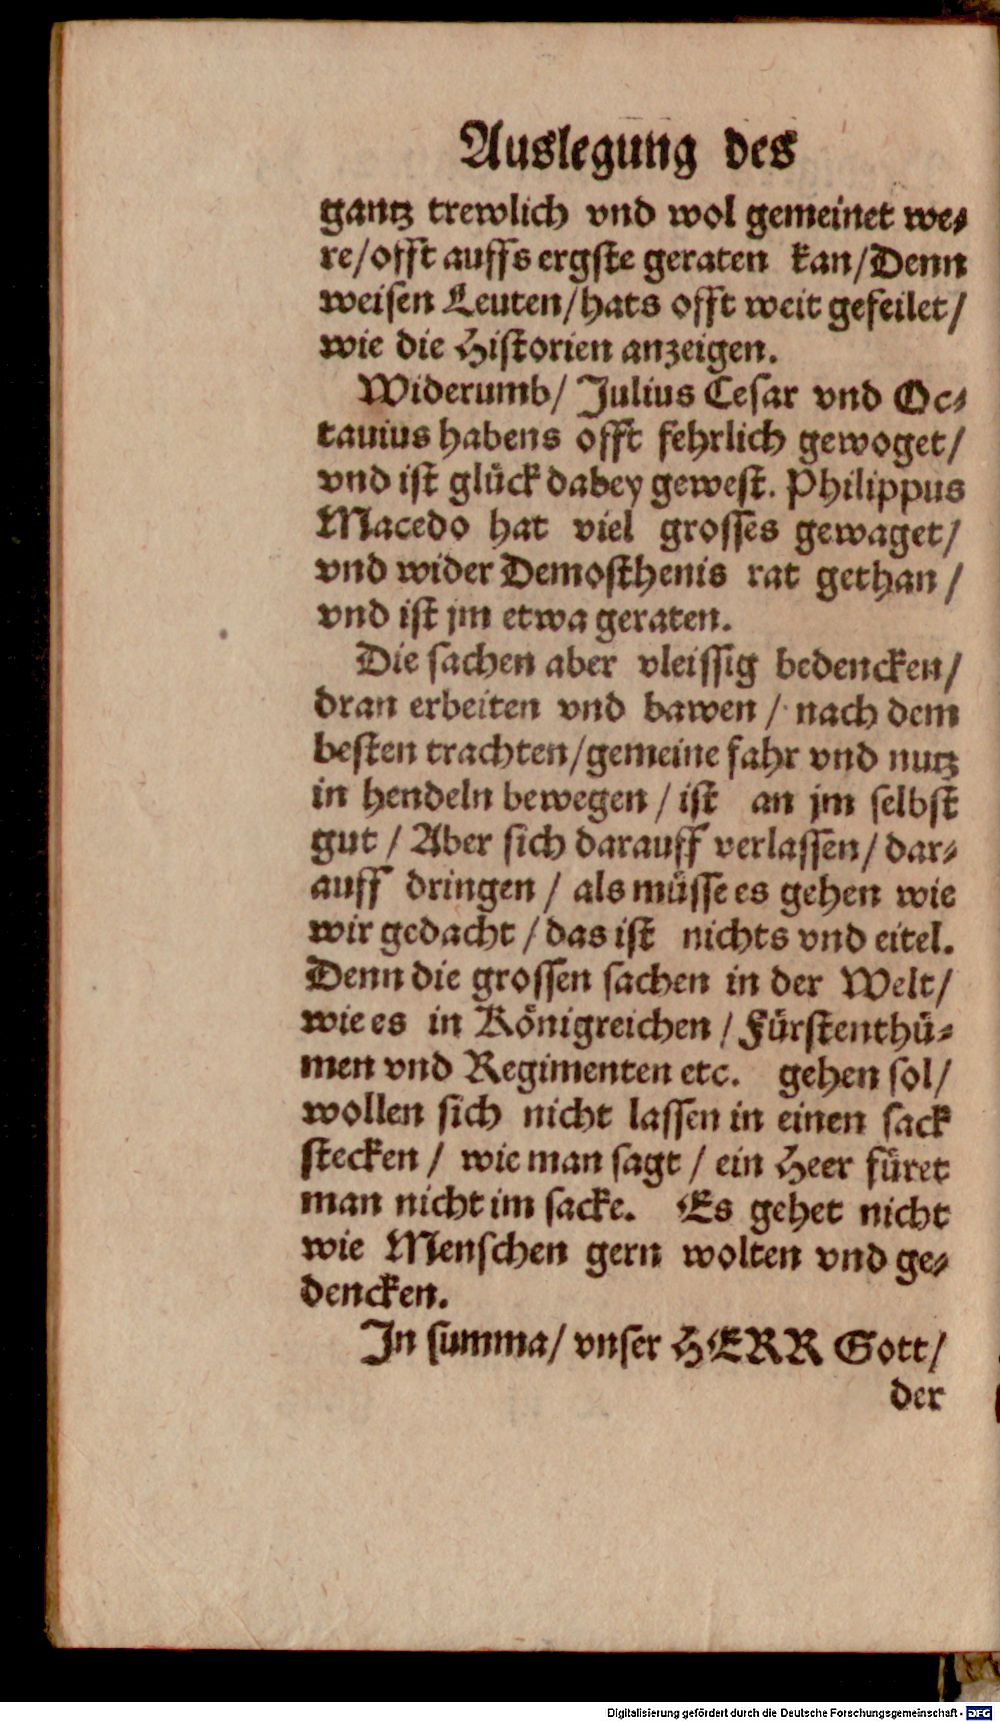 Auslegung des
gantz trewlich vnd wol gemeinet we-
re/offt auffs ergste geraten kan/Denn
weisen Leuten/hats offt weit gefeilet/
wie die Historien anzeigen.
Widerumb/ Julius Cesar vnd Oc-
tauius habens offt fehrlich gewoget/
vnd ist glück dabey gewest. Philippus
Macedo hat viel grosses gewaget/
vnd wider Demosthenis rat gethan/
vnd ist jm etwa geraten.
Die sachen aber vleissig bedencken/
dran erbeiten vnd bawen/ nach dem
besten trachten/gemeine fahr vnd nutz
in hendeln bewegen/ ist an jm selbst
gut/ Aber sich darauff verlassen/ dar-
auff dringen/ als müsse es gehen wie
wir gedacht/ das ist nichts vnd eitel.
Denn die grossen sachen in der Welt/
wie es in Königreichen/ Fürstenthü-
men vnd Regimenten etc. gehen sol/
wollen sich nicht lassen in einen sack
stecken/ wie man sagt/ ein Heer füret
man nicht im sacke. Es gehet nicht
wie Menschen gern wolten vnd ge-
dencken.
In summa/ vnser HERR Gott/
der
Digitalisierung gefördert durch die Deutsche Forschungsgemeinschaft - DFG